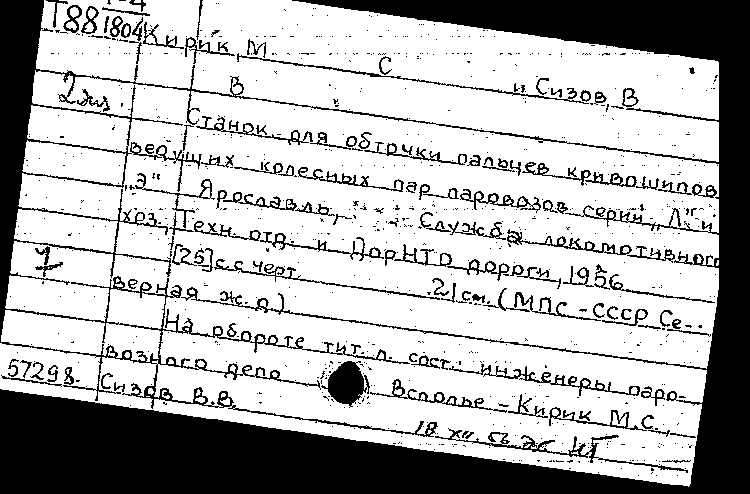 Т88 1-4
1804 Кирик, М. С. и Сизов, В.
В.
2 экз.
Станок для обточки пальцев кривошипов
ведущих колесных пар паровозов серий „Л" и
„Э" Ярославль, Служба локомотивного
хоз., Техн. отд. и ДорНТО дороги, 1956
[25] с. с черт. 21 см. (МПС-СССР Се-
верная ж. д.)
1
На обороте тит. л. сост.: инженеры паро-
возного депо Всполье - Кирик М.С.,
57298. Сизов В.В.
18 XII. 56